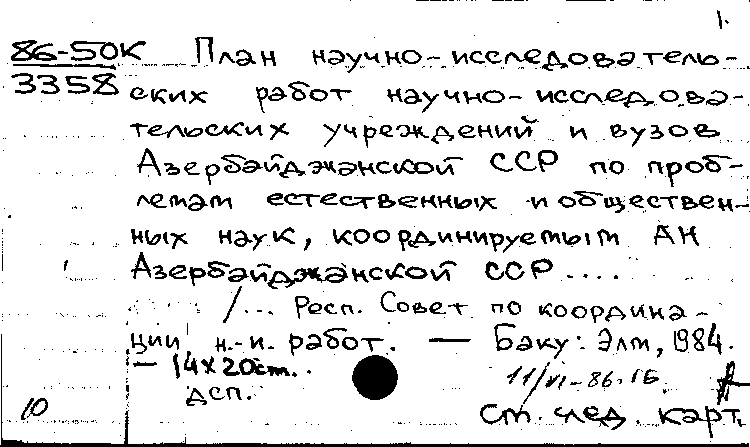 1.
86-50К План научно-исследователь-
3358 ских работ научно-исследова-
тельских учреждений и вузов
Азербайджанской ССР по проб-
лемам естественных и обществен-
ных наук, координируемым АН
Азербайджанской ССР ....
/... Респ. Совет по координа-
ции н.-и. работ. — Баку: Элм, 1984.
— 14х20см.
11/VI-86.
дсп.
10
См. след. карт.